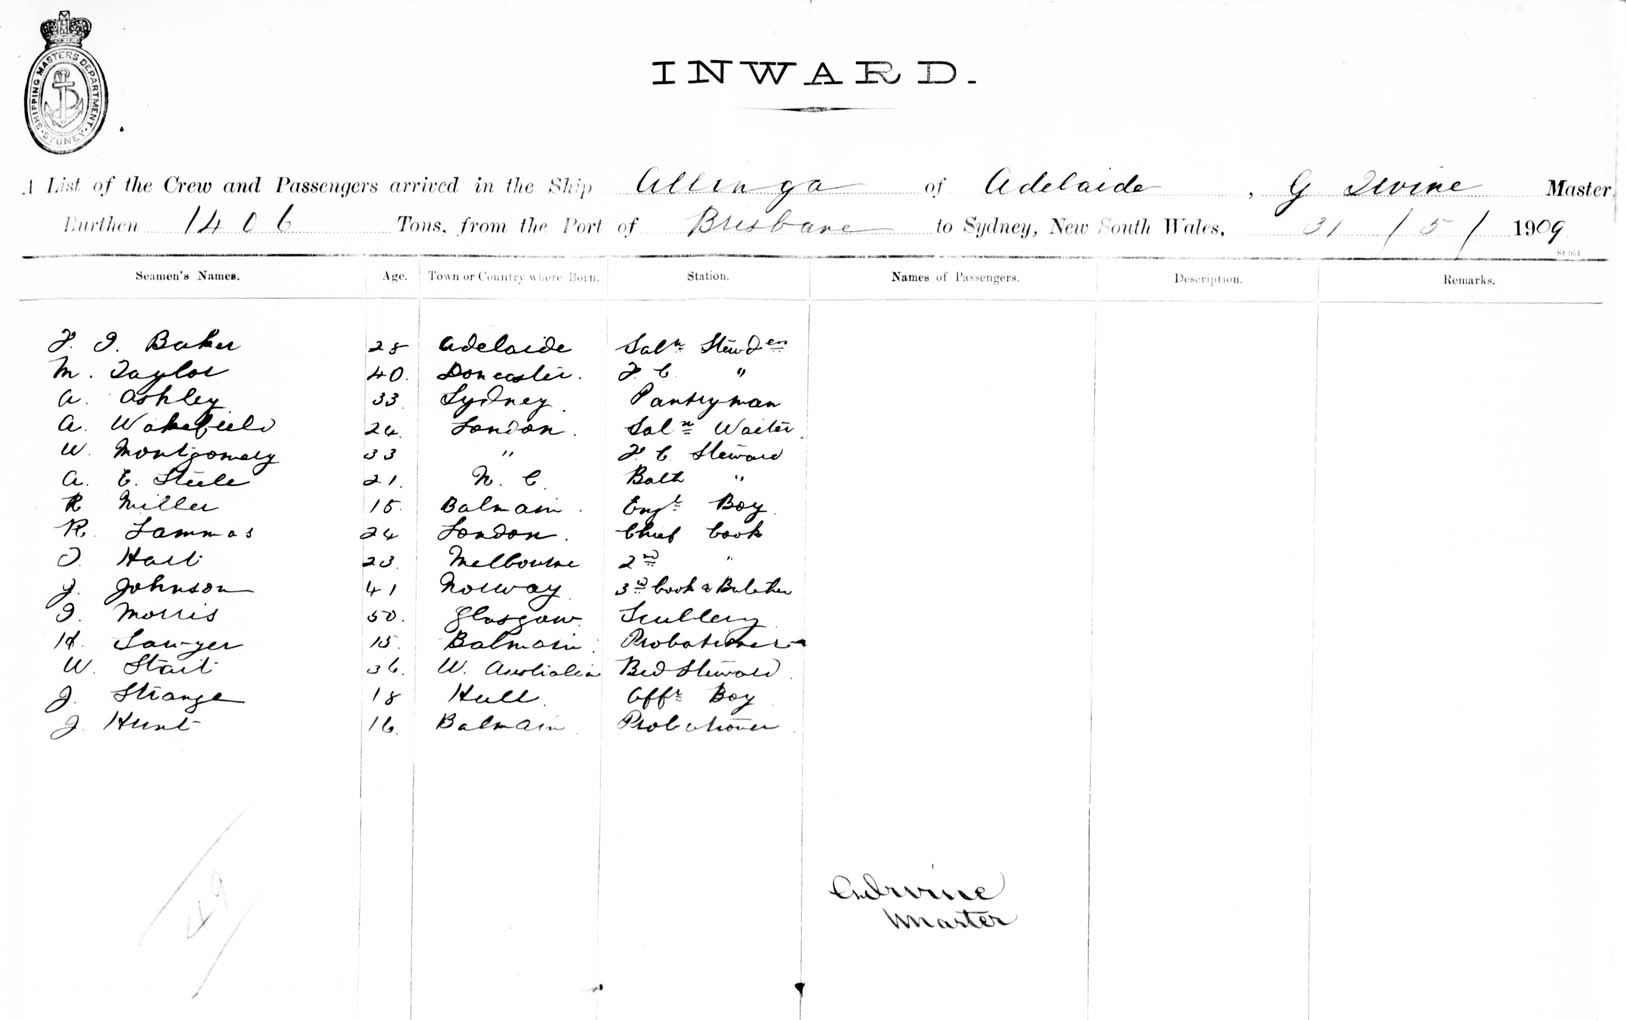 SHIPPING MASTERS DEPARTMENT
SYDNEY
INWARD.
A List of the Crew and Passengers arrived in the Ship Allinga of Adelaide, G Irvine Master
Burthen 1406 Tons, from the Port of Brisbane to Sydney, New South Wales, 31/5/1909
Seamen's Names. Age. Town or Country where Born. Station. Names of Passengers. Description. Remarks.
F. I. Baker 28 Adelaide Saln Stewden
M. Taylor 40. Doncaster. F C "
A. Ashley 33 Sydney. Pantryman
A. Wakefield 24. London. Saln Waiter.
W. Montgomery 33 " F C Steward
A. E. Steele 21. N. C. Bath "
R Miller 15. Balmain. Engr Boy
R. Lammas 24 London. Chief Cook
J. Hart 23. Melbourne 2nd "
J. Johnson 41 Norway 3rd Cook & Butcher
J. Morris 50. Glasgow. Scullery
H. Sawyer 15. Balmain. Probationer
W. Stait 36. W. Australia Bed Steward
J. Strange 18 Hull Offr Boy
J. Hunt 16. Balmain. Probationer
49
G Irvine
Master